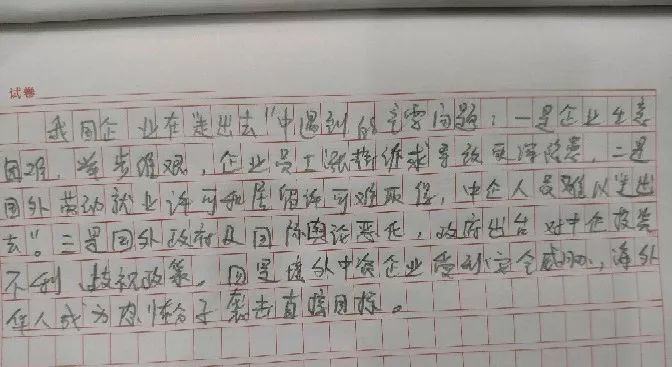 试卷
我国企业在"走出去"中遇到的主要问题：一是企业生意
困难，举步维艰，企业员工涨薪诉求导致要评谈差，二是
国外劳动就业许可和居留许可难取得，中企人员难以"走出
去"。三是国外政府及国际舆论恶化，政府出台对中企投资
不利歧视政策。四是境外中资企业受到安全威胁，海外
华人成为恐怖分子袭击直接目标。